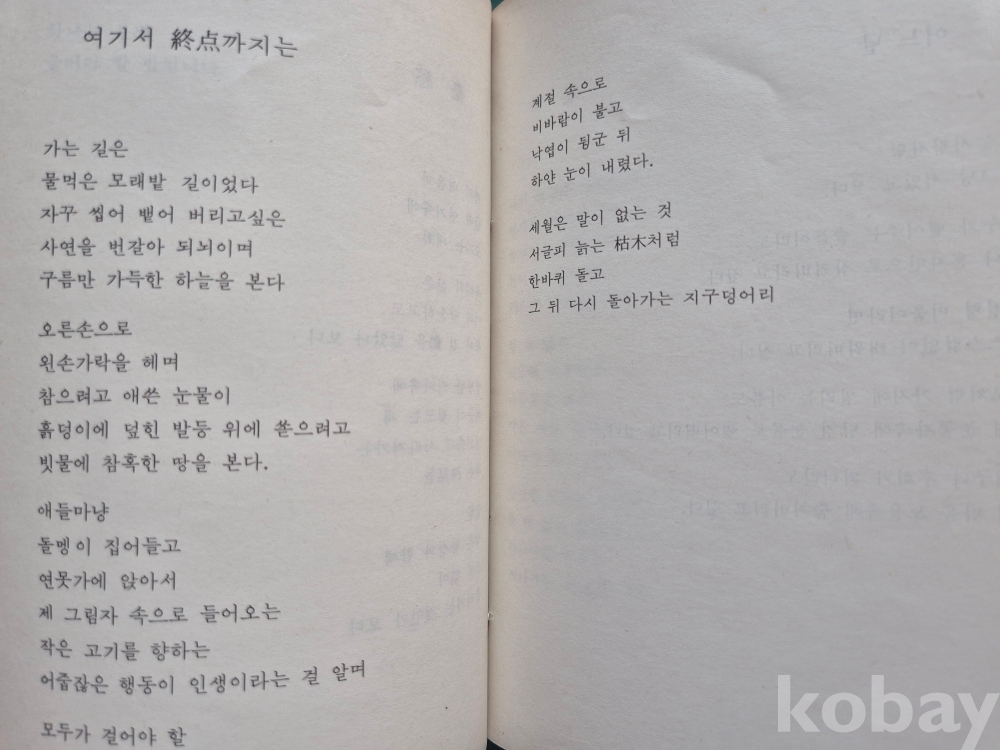 여기서 終点까지는
가는 길은
물먹은 모래밭 길이었다
자꾸 씹어 뱉어 버리고싶은
사연을 번갈아 되뇌이며
구름만 가득한 하늘을 본다
오른손으로
왼손가락을 헤며
참으려고 애쓴 눈물이
흙덩이에 덮힌 발등 위에 쏟으려고
빗물에 참혹한 땅을 본다.
애들마냥
돌멩이 집어들고
연못가에 앉아서
제 그림자 속으로 들어오는
작은 고기를 향하는
어줍잖은 행동이 인생이라는 걸 알며
모두가 걸어야 할
계절 속으로
비바람이 불고
낙엽이 뒹군 뒤
하얀 눈이 내렸다.
세월은 말이 없는 것
서글피 늙는 枯木처럼
한바퀴 돌고
그 뒤 다시 돌아가는 지구덩어리
kobay